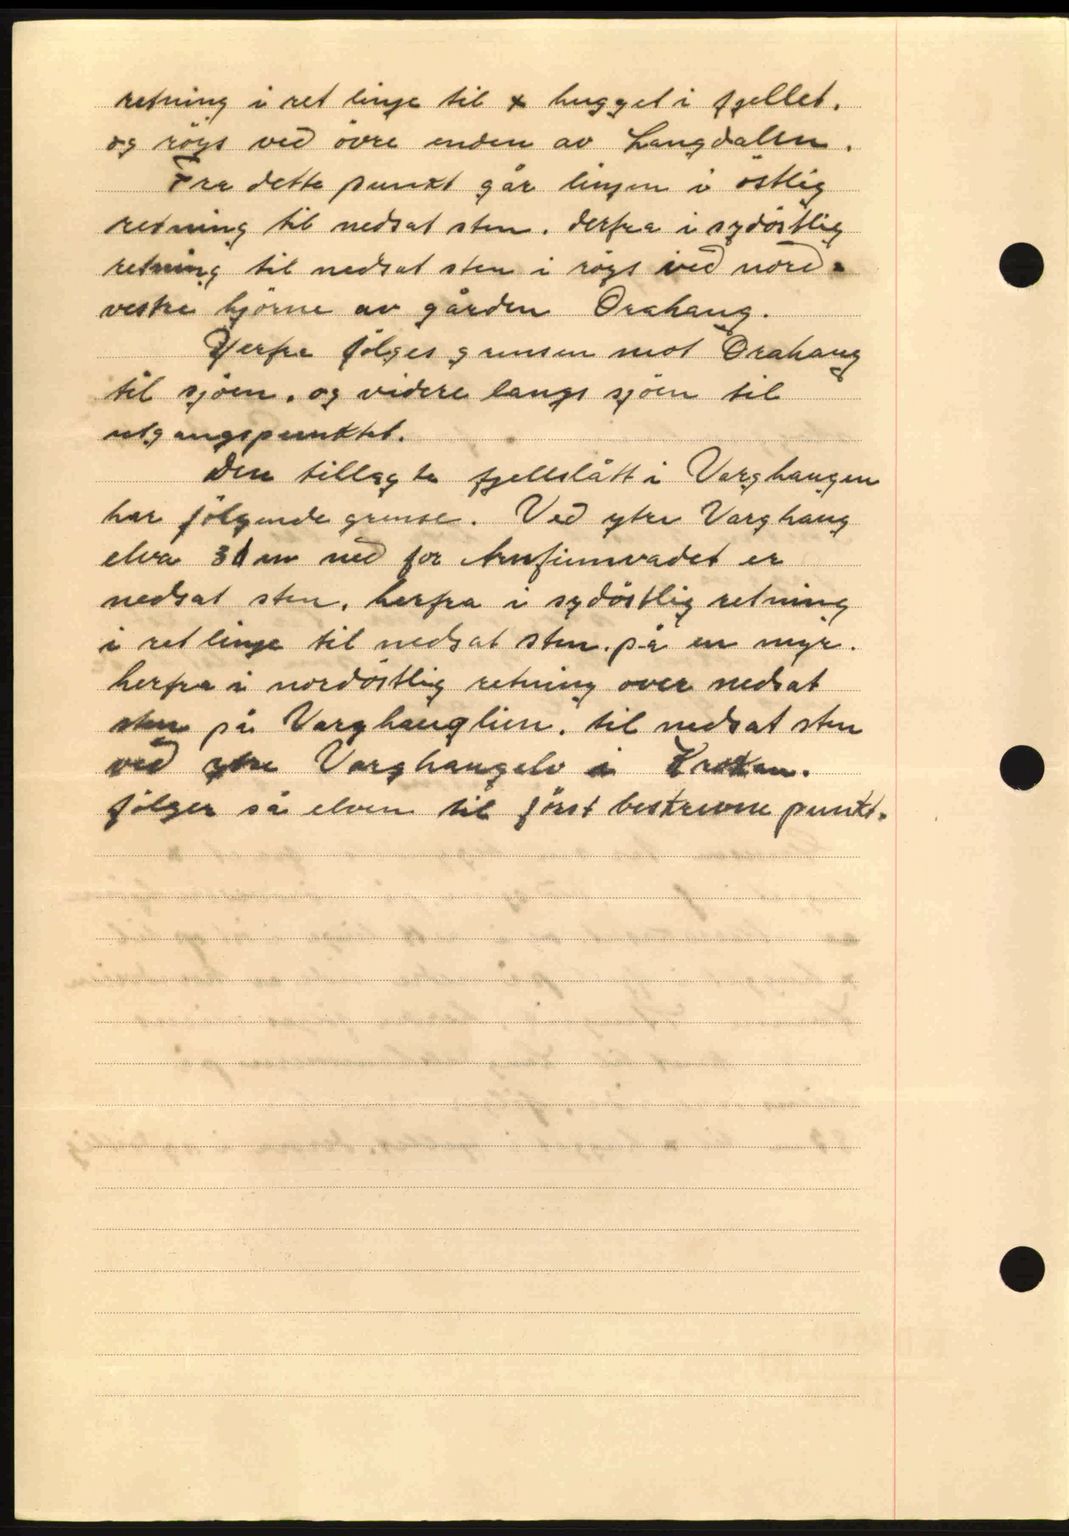 retning i ret linje til x hugget i fjellet.
og röys ved övre enden av Langdalen.
Fra dette punkt går linjen i östlig
retning til nedsat sten. derfra i sydöstlig
retning til nedsat sten i röys ved nord-
vestre hjörne av gården Orahaug.
Herfra fölges grensen mot Orahaug
til sjöen. og videre langs sjöen til
utgangspunktet.
Den tillagte fjellslått i Varghaugen
har fölgende grense. Ved ytre Varghaug
elva 30 m ned for Arnfinnvadet er
nedsat sten. herfra i sydöstlig retning
i ret linje til nedsat sten. på en myr.
herfra i nordöstlig retning over nedsat
sten på Varghauglien. til nedsat sten
ved ytre Varghaugelv i Kroken.
fölger så elven til först beskrevne punkt.